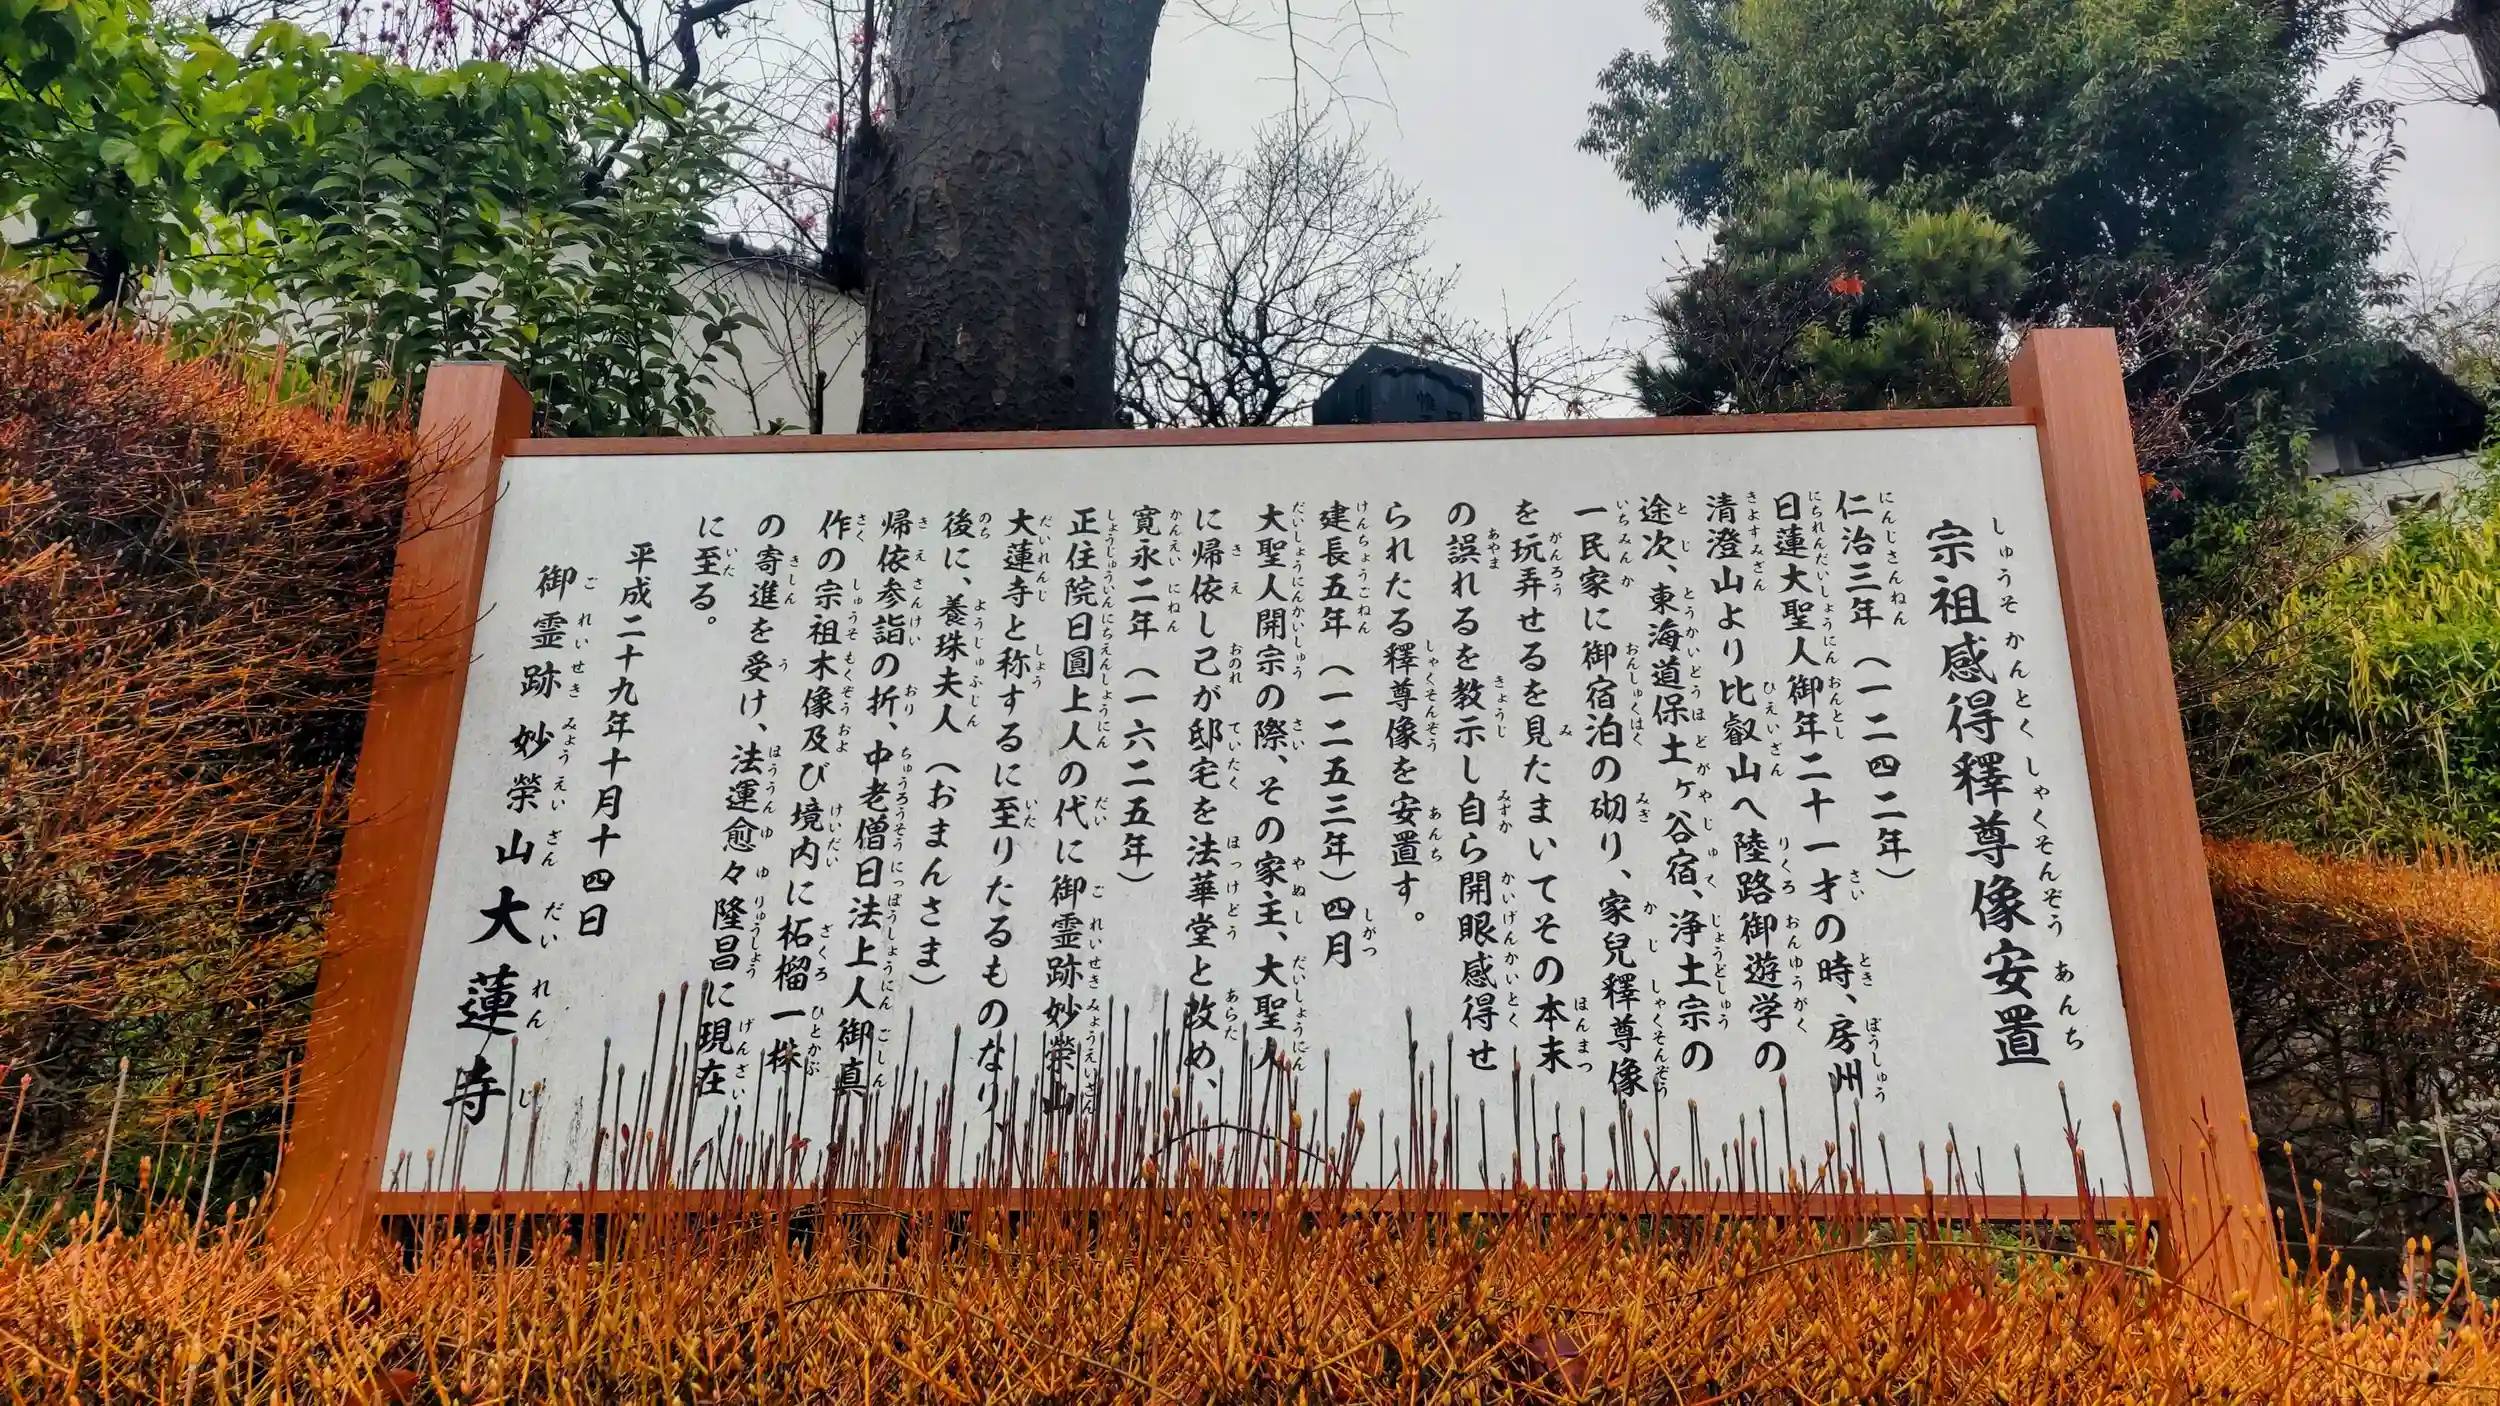 宗祖感得釋尊像安置
仁治三年（一二四二年）
日蓮大聖人御年二十一才の時、房州
清澄山より比叡山へ陸路御遊学の
途次、東海道保土ヶ谷宿、浄土宗の
一民家に御宿泊の砌り、家兒釋尊像
を玩弄せるを見たまいてその本末
の誤れるを教示し自ら開眼感得せ
られたる釋尊像を安置す。
建長五年（一二五三年）四月
大聖人開宗の際、その家主、大聖人
に帰依し己が邸宅を法華堂と改め、
寛永二年（一六二五年）
正住院日圓上人の代に御霊跡妙榮山
大蓮寺と称するに至りたるものなり、
後に、養珠夫人（おまんさま）
帰依参詣の折、中老僧日法上人御真
作の宗祖木像及び境内に柘榴一株
の寄進を受け、法運愈々隆昌に現在
に至る。
平成二十九年十月十四日
御霊跡 妙榮山 大蓮寺